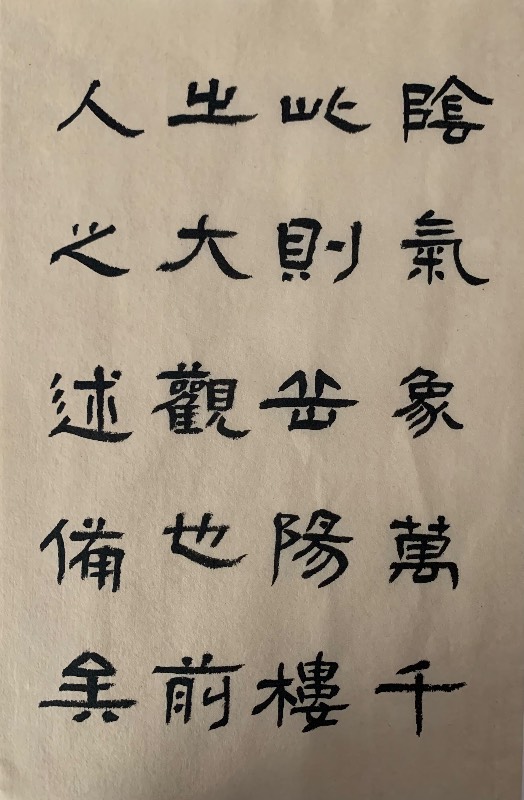 陰氣象萬千
此則岳陽樓
之大觀也前
人之述備矣